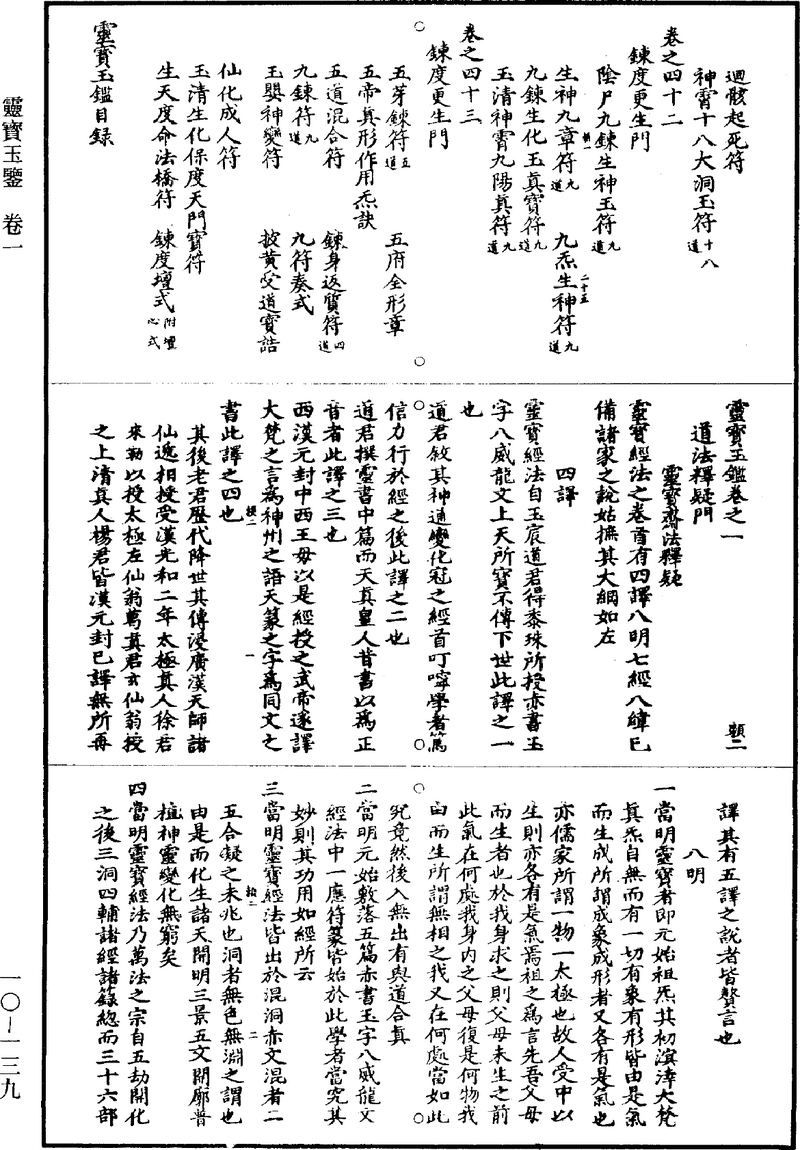 靈寶玉鑒　卷一
迴骸起死符
神霄十八大洞玉符十八道
卷之四十二
鍊度更生門
陰尸九鍊生神玉符九道
生神九章符九道　九炁生神符九道
二十五
九鍊生化玉真寶符九道
玉清神霄九陽真符九道
卷之四十三
鍊度更生門
五芽鍊符五道　五府全形章
五帝真形作用炁訣
五道混合符　鍊身返質符四道
九鍊符九道　九符奏式
玉嬰神變符　披黃受道寶誥
仙化成人符
玉清生化保度天門寶符
生天度命法橋符　鍊度壇式附壇心式
靈寶玉鑑目録
靈寶玉鑑卷之一
道法釋疑門
靈寶齋法釋疑
靈寶經法之卷首有四譯八明七經八緯已
備諸家之說姑摭其大綱如左
四譯
靈寶經法自玉宸道君得黍珠所授赤書玉
字八威龍文上天所寶不傳下世此譯之一
也
道君敘其神通變化冠之經首叮嚀學者篤
信力行於經之後此譯之二也
道君撰靈書中篇而天真皇人昔書以爲正
音者此譯之三也
西漢元封中西王母以是經授之武帝遂譯
大梵之言爲神州之語天篆之字爲同文之
書此譯之四也
其後老君歷代降世其傳浸廣漢天師諸
仙遞相授受漢光和二年太極真人徐君
來勒以授太極左仙翁葛真君玄仙翁授
之上清真人楊君皆漢元封已譯無所再
譯其有五譯之說者皆贅言也
八明
一當明靈寶者即元始祖炁其初溟涬大梵
真炁自無而有一切有象有形皆由是氣
而生成所謂成象成形者又各有是氣也
亦儒家所謂一物一太極也故人受中以
生則亦各有是氣焉祖之爲言先吾父母
而生者也於我身求之則父母未生之前
此氣在何處我身內之父母復是何物我
由而生所謂無相之我又在何處當如此
究竟然後入無出有與道合真
二當明元始敷落五篇赤書玉字八威龍文
經法中一應符篆皆始於此學者當究其
妙則其功用如經所云
三當明靈寶經法皆出於混洞赤文混者二
五合凝之未兆也洞者無色無淵之謂也
由是而化生諸天開明三景五文開廓普
植神靈變化無窮矣
四當明靈寶經法乃萬法之宗自五劫開化
之後三洞四輔諸經諸籙總而三十六部
一〇－一三九